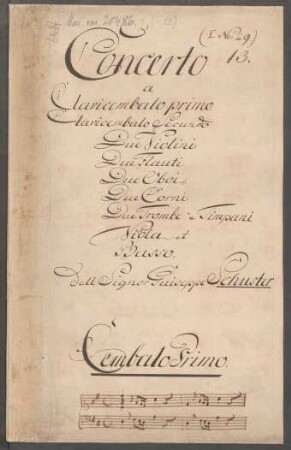 (I. No. 29)
Concerto 13.
a
Clavicembalo primo
Clavicembalo Secundo
Due Violini
Due Flauti
Due Oboi
Due Corni
Due Trombe Timpani
Viola et
Basso.
Dell Signor Giuseppe Schuster
Cembalo Primo.